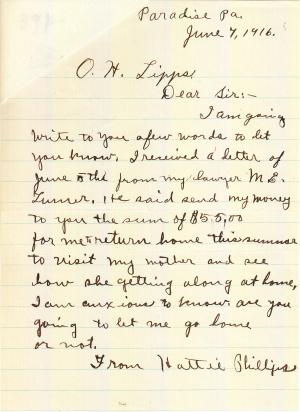 Paradise Pa.
June 7, 1916.
O. H. Lipps,
Dear Sir:-
I am going
write to you a few words to let
you know, I received a letter of
June 5th from my lawyer M. E.
He said send my money
to you the sum of $55,00
for me to return home this summer
to visit my mother and see
how she getting along at home,
I am anxious to know are you
going to let me go home
or not.
From Hattie Phillips